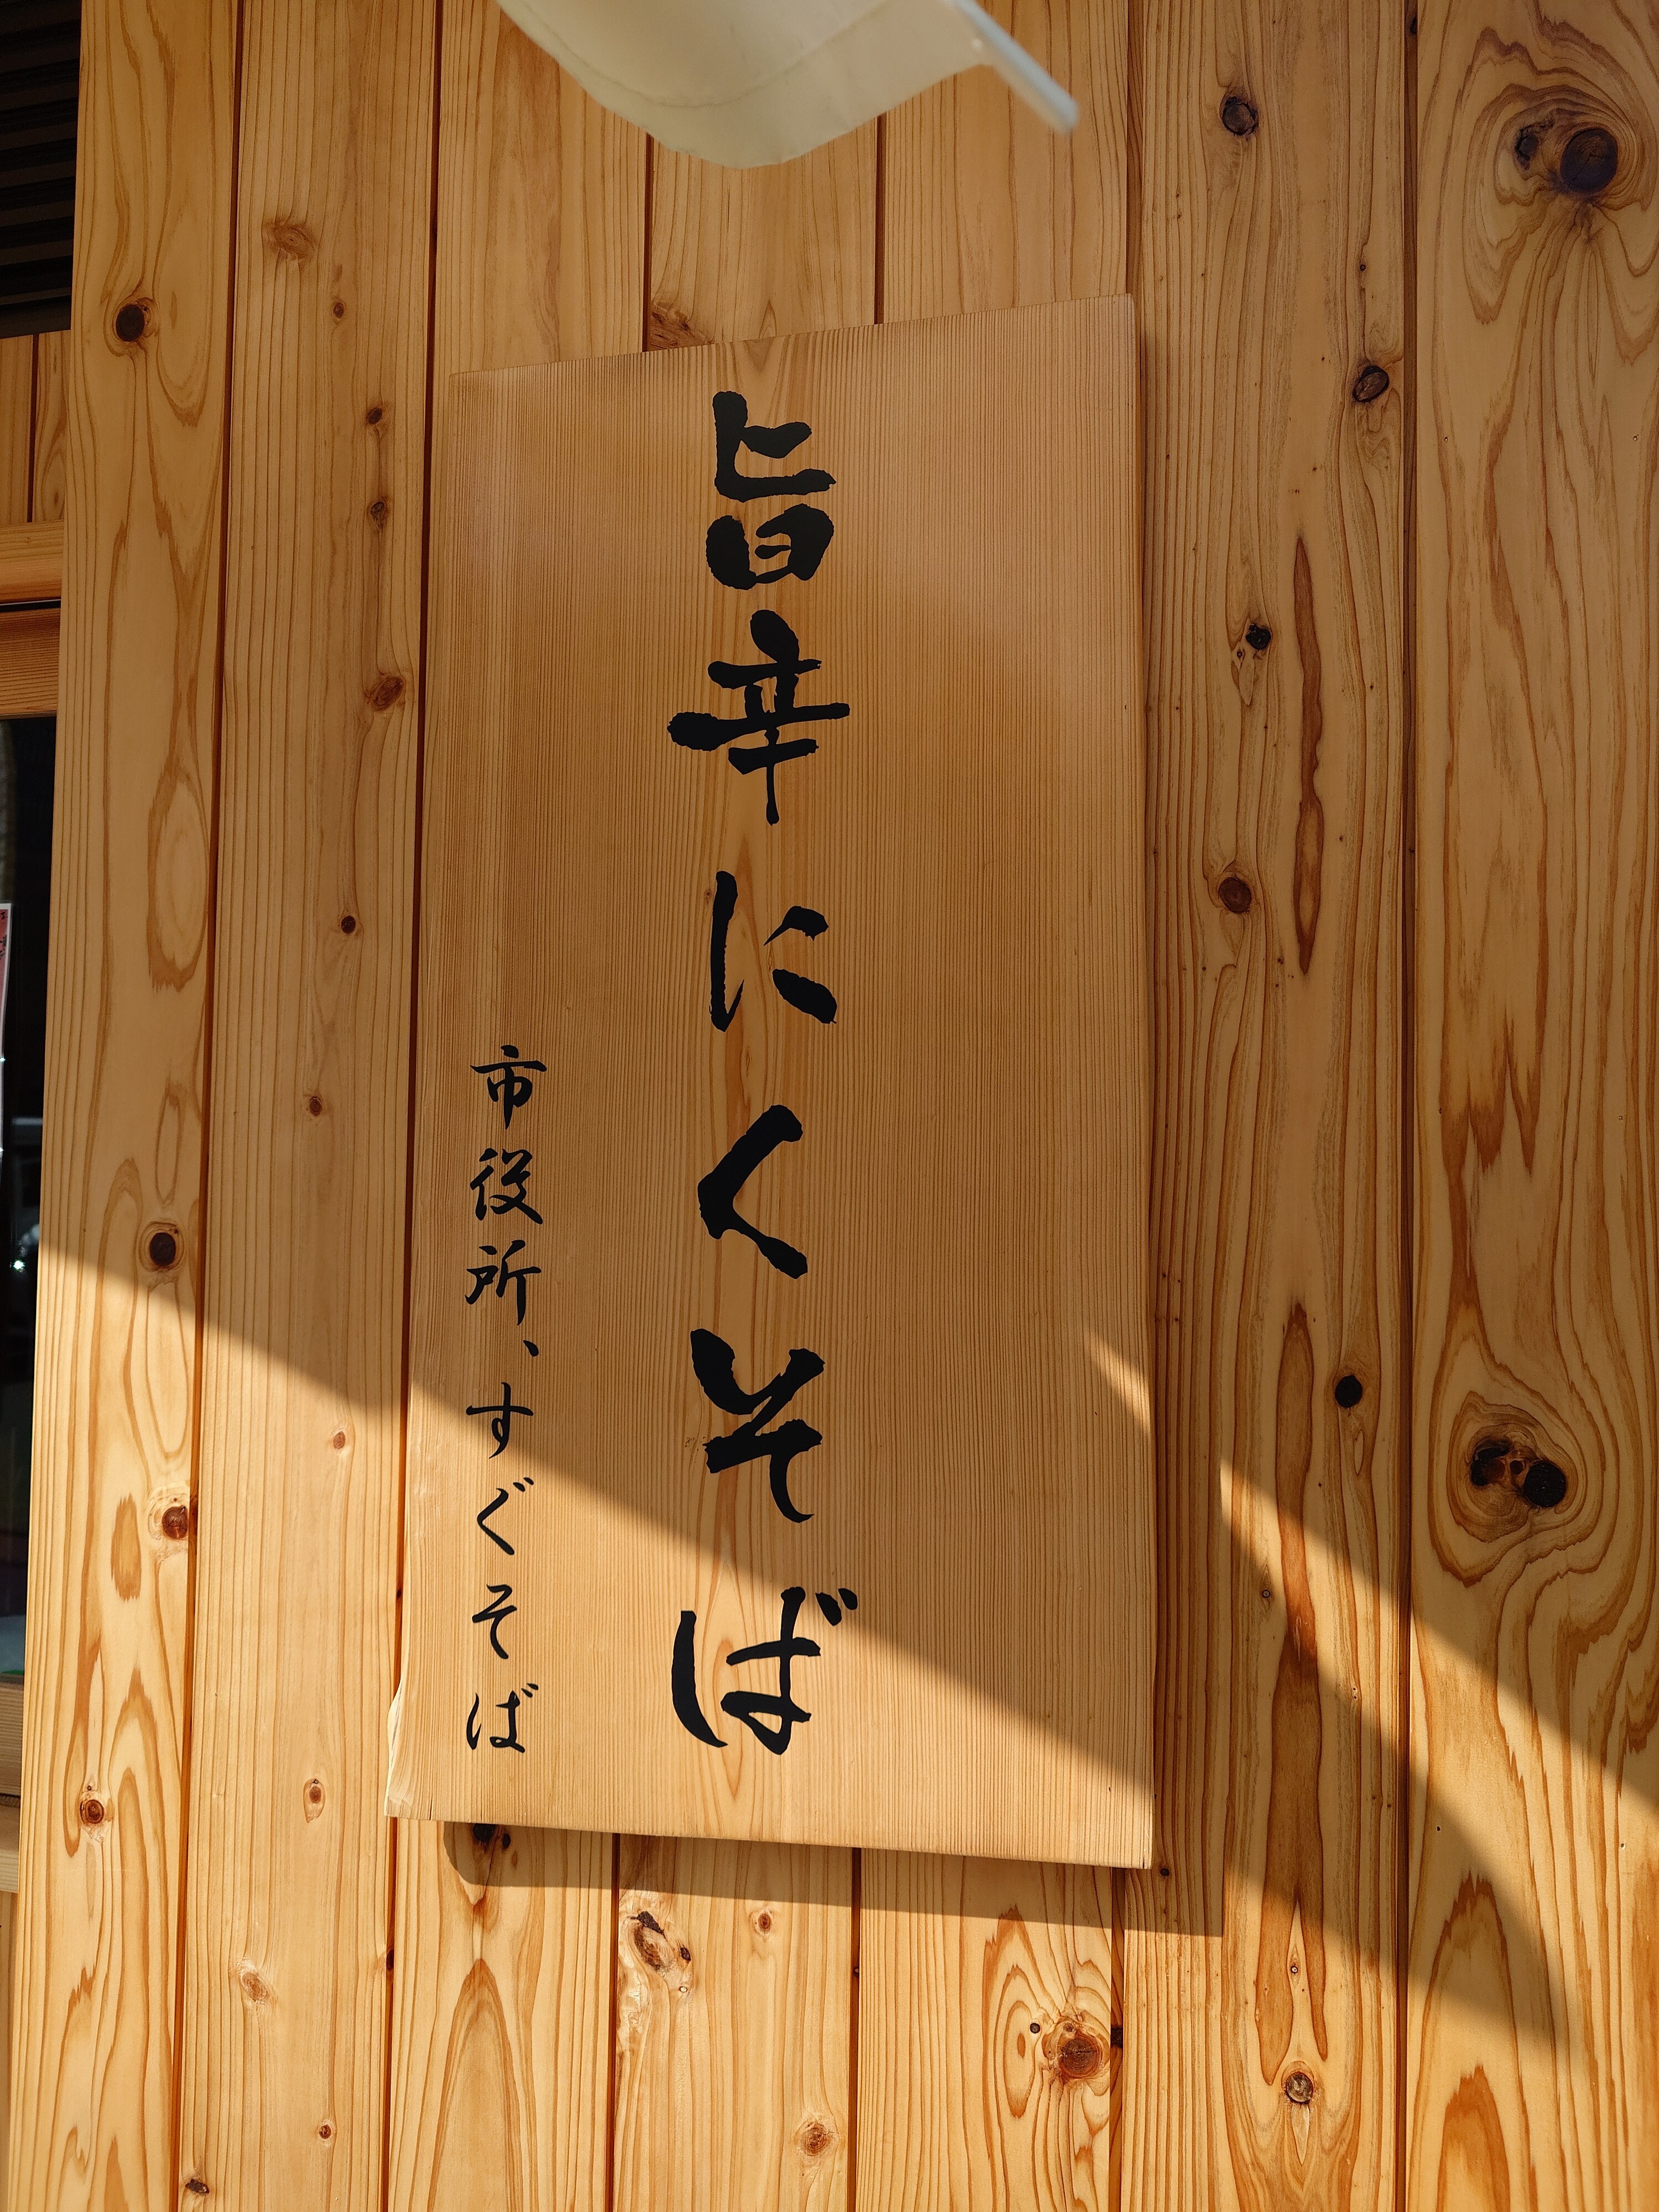 旨辛にくそば
市役所、すぐそば